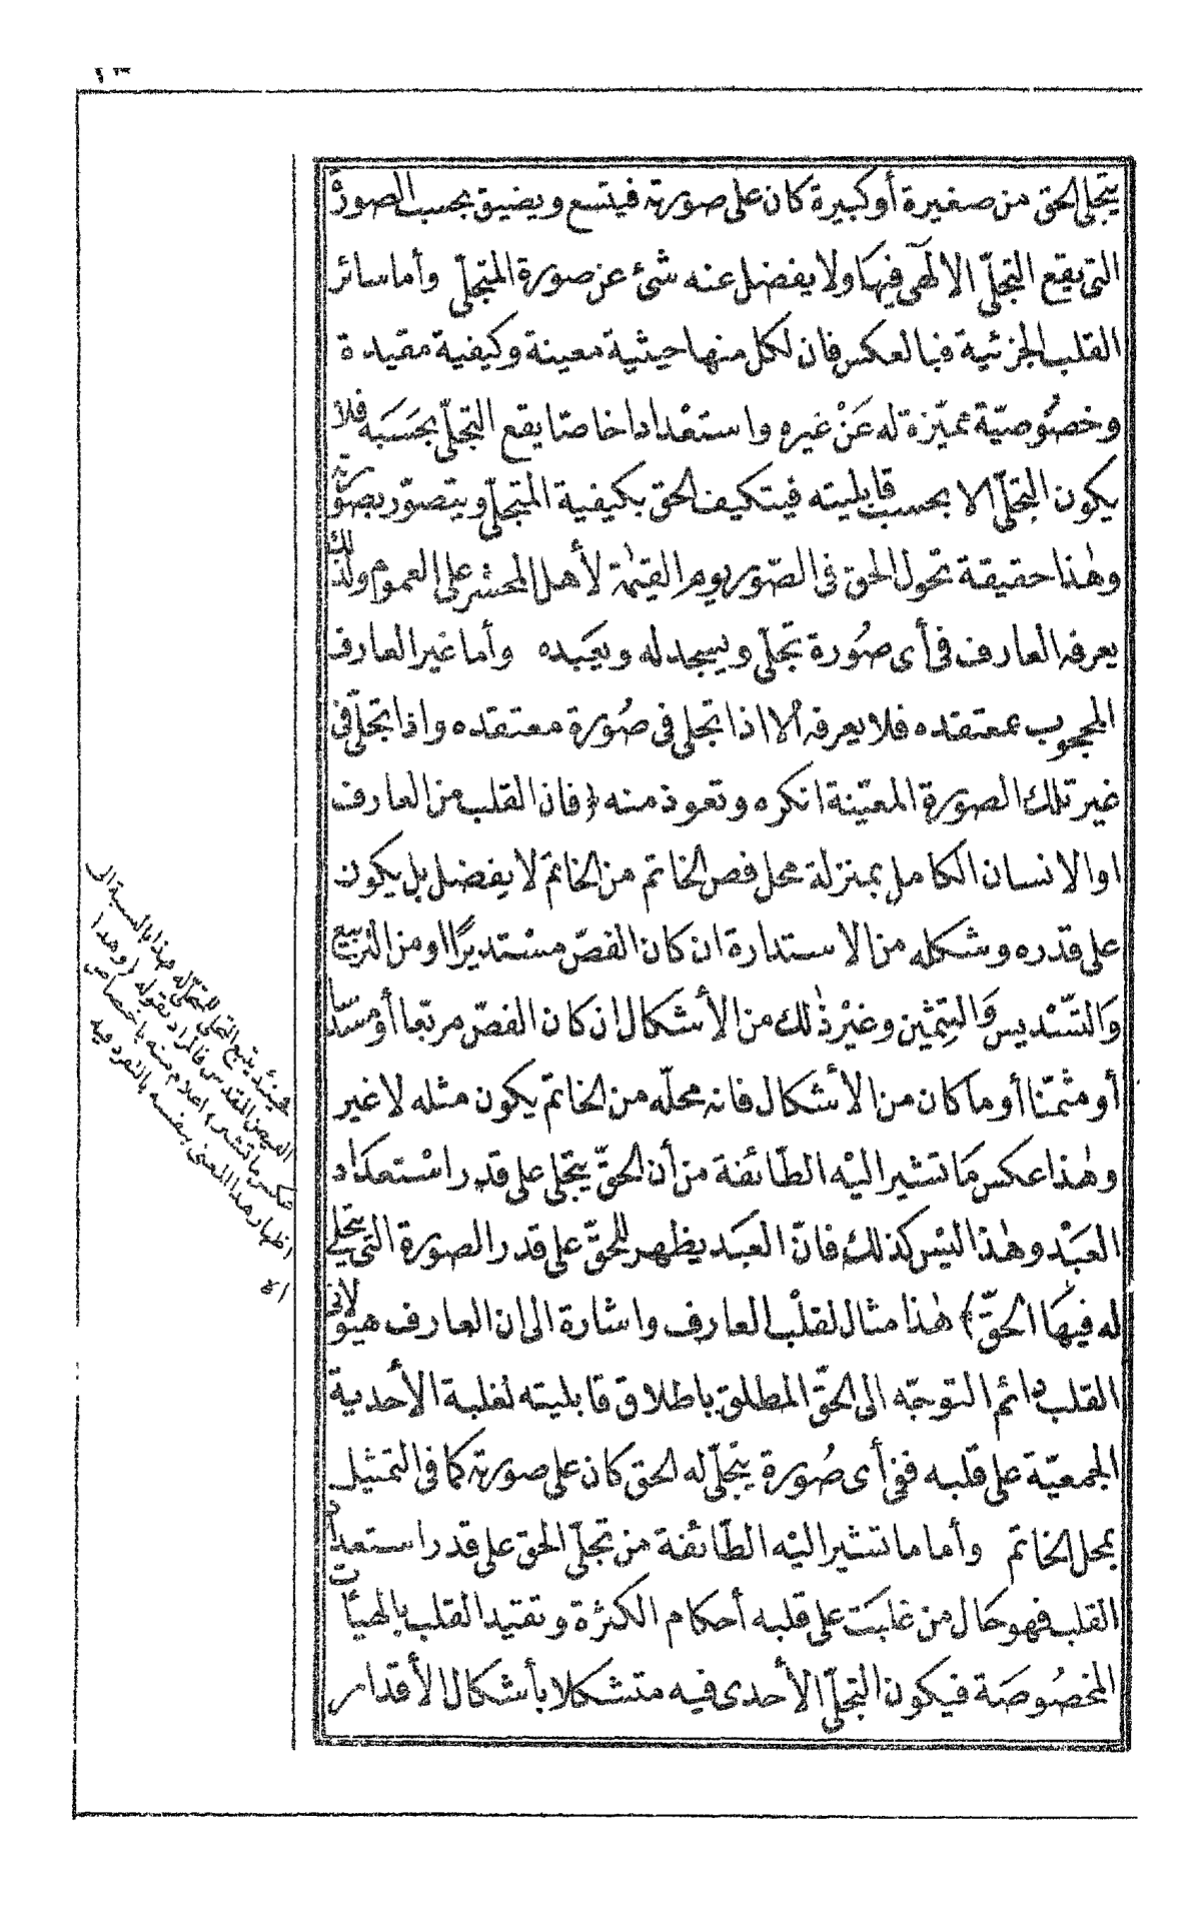 يتجلى الحق من صغيرة أو كبيرة كان على صورته فيتسع ويضيق بحسب الصورة
التى يقع التجلّى الالهى فيها ولا يفضل عنه شئ عن صورة المتجلّى وأما سائر
القلب الجزئية فبالعكس فان لكل منها حيثية معينة وكيفية مقيدة
وخصُوصيّة مميّزة له عَنْ غيره واستعْدادا خاصّا يقع التجلّى بحَسَبه فلا
يكون التجلّى الا بحسب قابليته فيتكيف الحق بكيفية المتجلّى ويتصوّر بصورته
وهٰذا حقيقة تحول الحق فى الصّور يوم القيٰمة لأهل المحشر على العموم ولذلك
يعرفه العارف فى أى صُورة تجلّى ويسجد له ويعبده وأما غير العارف
المحجوب بمعتقده فلا يعرفه الا اذا تجلى فى صُورة معتقده واذا تجلّى فى
غير تلك الصورة المعيّنة انكره وتعوذ منه (فان القلب من العارف
او الانسان الكامل بمنزلة محل فص الخاتم من الخاتم لا يفضل بل يكون
على قدره وشكله من الاستدارة ان كان الفصّ مسْتديرًا او من التربيع
وَالتّسْديس وَالتثمين وغيْر ذٰلك من الأشكال ان كان الفصّ مربّعا أو مسدّسا
أو مثمّنا أو ما كان من الأشكال فانه محلّه من الخاتم يكون مثله لا غير
وهٰذا عكس مَا تشير اليْه الطّائفة من أن الحقّ يتجلى على قدر اسْتعدَاد
العَبْد وهٰذا ليْس كذلك فانّ العبَد يظهر للحقّ على قدر الصورة التى يتجلى
له فيهَا الحَقّ) هٰذا مثال لقلْب العارف واشارة الى ان العارف هيولانى
القلب دائم التوجّه الى الحَقّ المطلق باطلاق قابليته لغلبة الأحدية
الجمعيّة على قلبه ففى أى صُورة يتجلّى له الحق كان على صورته كما فى التمثيل
بمحل الخاتم وأما ما تشير اليْه الطّائفة من تجلّى الحق على قدر استعداد
القلب فهو حَال من غلبَت على قلبه أحكام الكثرة وتقيد القلب بالهيئات
المخصُوصَة فيكون التجلّى الأحدى فيه متشكلا بأشكال الأقدار
فحينئذ يتبع التجلى المتجلّى له وهذا بالنسبة الى
الفيض المقدس فالمراد بقوله (وهذا
عكس ما تشير) اعلام منه باختصاص
اظهار هذا المعنى بنفسه بالتفرد فيه
اه